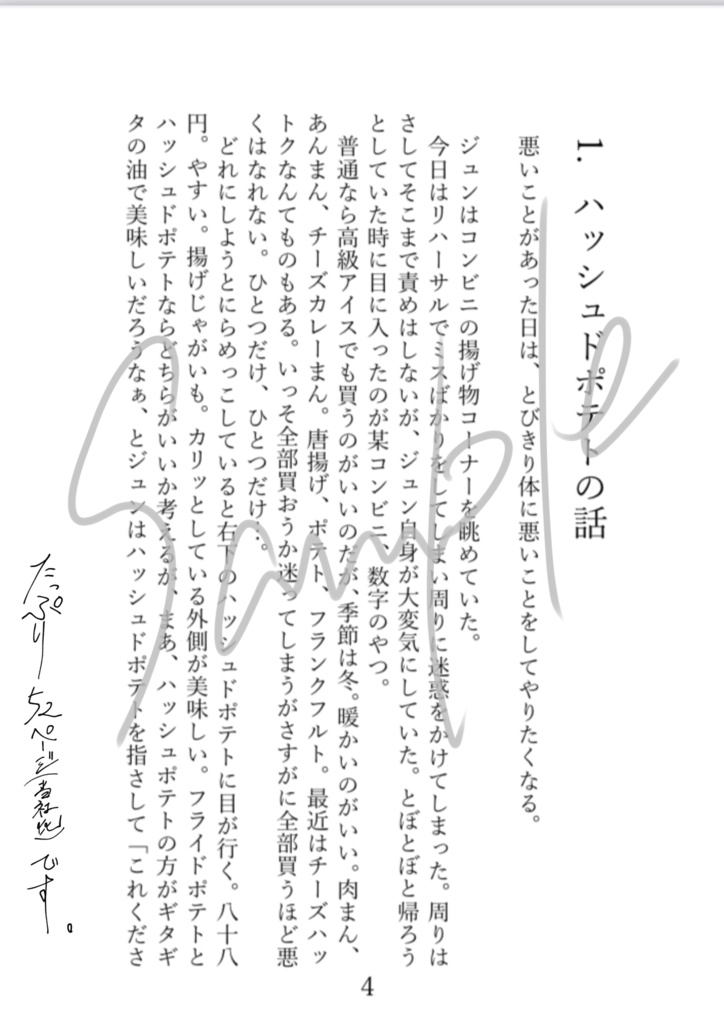 1. ハッシュドポテトの話
悪いことがあった日は、とびきり体に悪いことをしてやりたくなる。
ジュンはコンビニの揚げ物コーナーを眺めていた。
今日はリハーサルでミスばかりをしてしまい周りに迷惑をかけてしまった。周りは
さしてそこまで責めはしないが、ジュン自身が大変気にしていた。とぼとぼと帰ろう
としていた時に目に入ったのが某コンビニ、数字のやつ。
普通なら高級アイスでも買うのがいいのだが、季節は冬。暖かいのがいい。肉まん、
あんまん、チーズカレーまん。唐揚げ、ポテト、フランクフルト。最近はチーズハッ
トクなんてものもある。いっそ全部買おうか迷ってしまうがさすがに全部買うほど悪
くはなれない。ひとつだけ、ひとつだけ…。
どれにしようとにらめっこしていると右下のハッシュドポテトに目が行く。八十八
円。やすい。揚げじゃがいも。カリッとしている外側が美味しい。フライドポテトと
ハッシュドポテトならどちらがいいか考えるが、まあ、ハッシュポテトの方がギタギ
タの油で美味しいだろうなぁ、とジュンはハッシュドポテトを指さして「これくださ
たっぷり52ページ(当社比)です。
4
Sample